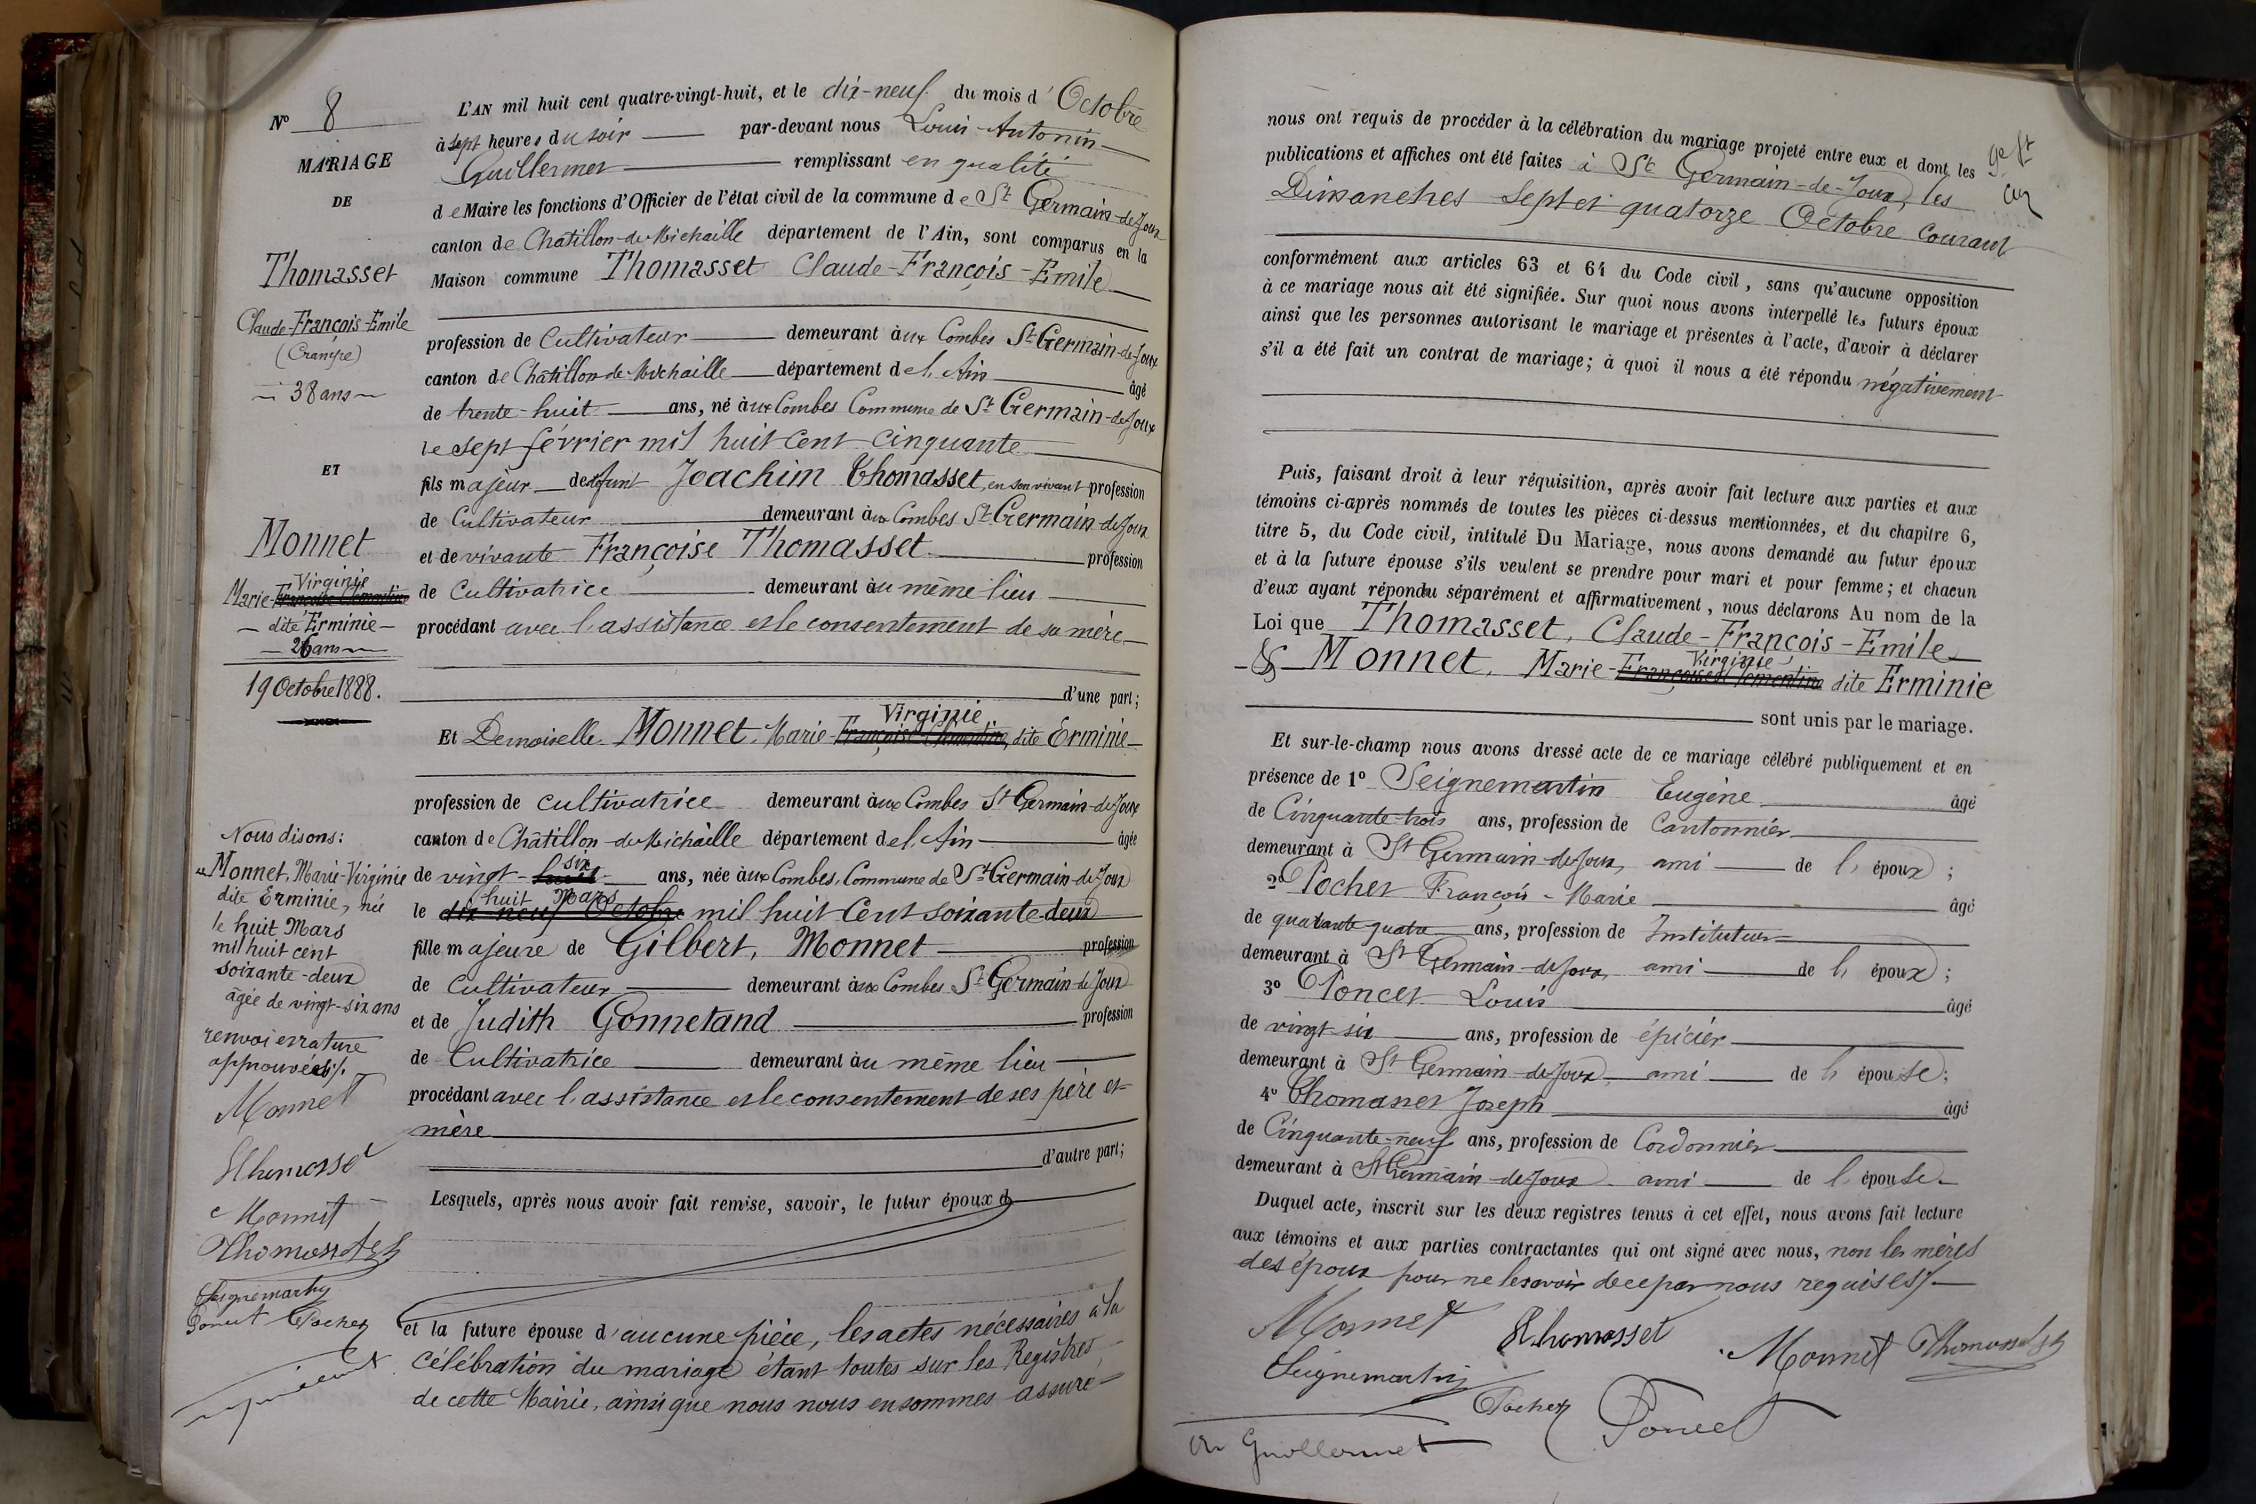 N° 8
MARIAGE
DE
Thomasset
Claude-François-Emile
38 ans
ET
Monnet
Virginie
Marie-Françoise Clémentine
dite Erminie
26 ans
19 Octobre 1888.
Nous disons:
Monnet, Marie-Virginie
dite Erminie, née
le huit Mars
mil huit cent
soixante-deux
âgée de vingt-six ans
renvoi et rature
approuvés
Monnet
Thomasset
Monnet
Thomasset
Seignemartin
Poncet Pochet
L'AN mil huit cent quatre-vingt-huit, et le dix-neuf du mois d'Octobre
à sept heures du soir par-devant nous Louis-Antonin
Guillermet remplissant en qualité
de Maire les fonctions d'Officier de l'état civil de la commune de St Germain-de-Joux
canton de Châtillon-de-Michaille département de l'Ain, sont comparus en la
Maison commune Thomasset Claude-François-Emile
profession de Cultivateur demeurant aux Combes St Germain-de-Joux
canton de Châtillon-de-Michaille département de l'Ain âgé
de trente-huit ans, né aux Combes Commune de St Germain-de-Joux
le sept février mil huit cent cinquante
fils majeur de défunt Joachim Thomasset, en son vivant profession
de Cultivateur demeurant aux Combes St Germain-de-Joux
et de vivante Françoise Thomasset profession
de Cultivatrice demeurant au même lieu
procédant avec l'assistance et le consentement de sa mère
d'une part;
Virginie
Et Demoiselle Monnet, Marie-Françoise Clémentine, dite Erminie
profession de cultivatrice demeurant aux Combes St Germain-de-Joux
canton de Châtillon-de-Michaille département de l'Ain âgée
six
de vingt-huit ans, née aux Combes, Commune de St Germain-de-Joux
huit Mars
le dix-neuf Octobre mil huit cent soixante-deux
fille majeure de Gilbert, Monnet profession
de Cultivateur demeurant aux Combes St Germain-de-Joux
et de Judith Gonnetand profession
de Cultivatrice demeurant au même lieu
procédant avec l'assistance et le consentement de ses père et
mère
d'autre part;
Lesquels, après nous avoir fait remise, savoir, le futur époux d
et la future épouse d'aucune pièce, les actes nécessaires à la
célébration du mariage étant toutes sur les Registres
de cette Mairie, ainsi que nous nous en sommes assuré
nous ont requis de procéder à la célébration du mariage projeté entre eux et dont les
publications et affiches ont été faites à St Germain-de-Joux, les
Dimanches sept et quatorze Octobre courant
conformément aux articles 63 et 64 du Code civil, sans qu'aucune opposition
à ce mariage nous ait été signifiée. Sur quoi nous avons interpellé les futurs époux
ainsi que les personnes autorisant le mariage et présentes à l'acte, d'avoir à déclarer
s'il a été fait un contrat de mariage; à quoi il nous a été répondu négativement
Puis, faisant droit à leur réquisition, après avoir fait lecture aux parties et aux
témoins ci-après nommés de toutes les pièces ci-dessus mentionnées, et du chapitre 6,
titre 5, du Code civil, intitulé Du Mariage, nous avons demandé au futur époux
et à la future épouse s'ils veulent se prendre pour mari et pour femme; et chacun
d'eux ayant répondu séparément et affirmativement, nous déclarons Au nom de la
Loi que Thomasset, Claude-François-Emile
Virginie
& Monnet, Marie-Françoise Clémentine dite Erminie
sont unis par le mariage.
Et sur-le-champ nous avons dressé acte de ce mariage célébré publiquement et en
présence de 1° Seignemartin Eugène âgé
de Cinquante-trois ans, profession de Cantonnier
demeurant à St Germain-de-Joux, ami de l'époux;
2° Pochet François-Marie âgé
de quarante quatre ans, profession de Instituteur
demeurant à St Germain-de-Joux, ami de l'époux;
3° Poncet Louis âgé
de vingt-six ans, profession de épicier
demeurant à St Germain-de-Joux, ami de l'épouse;
4° Thomasset Joseph âgé
de Cinquante-neuf ans, profession de Cordonnier
demeurant à St Germain-de-Joux ami de l'épouse.
Duquel acte, inscrit sur les deux registres tenus à cet effet, nous avons fait lecture
aux témoins et aux parties contractantes qui ont signé avec nous, non les mères
des époux pour ne le savoir de ce par nous requises
Monnet Thomasset Monnet Thomasset
Seignemartin Pochet Poncet
Guillermet